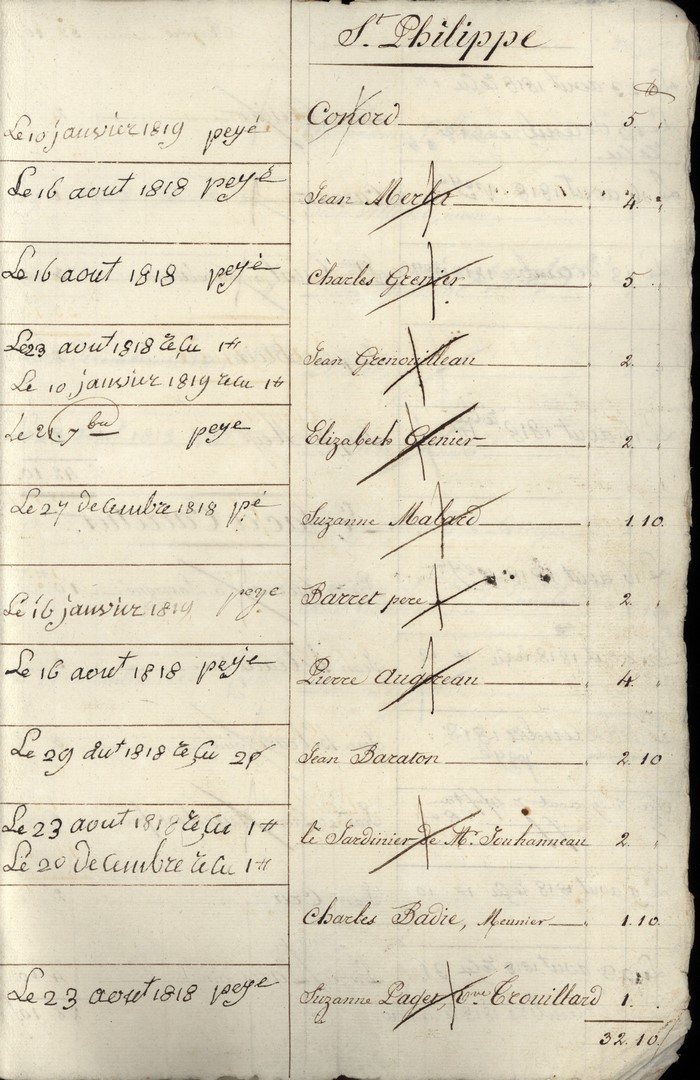 St. Philippe
Le 10 janvier 1819 peyé Conord 5.
Le 16 aout 1818 peyé Jean Merlet 4.
Le 16 aout 1818 peyé Charles Grenier 5.
Le 23 aout 1818 reçu 1tt
Jean Grenouilleau 2.
Le 10 janvier 1819 reçu 1tt
Le 21. 7bre peye Elizabeth Grenier 2.
Le 27 decembre 1818 pé Suzanne Mabard 1. 10.
Le 16 janvier 1819 peye Barret pere 2.
Le 16 aout 1818 peye Pierre Augereau 4.
Le 29 aut 1818 reçu Jean Baraton 2. 10
Le 23 aout 1818 reçu 1tt
le Jardinier de Mr. Jouhanneau 2.
Le 20 decembre reçu 1tt
Charles Badie, Meunier 1. 10.
Le 23 aout 1818 peye Suzanne Paget, Vve Trouillard 1.
32. 10.